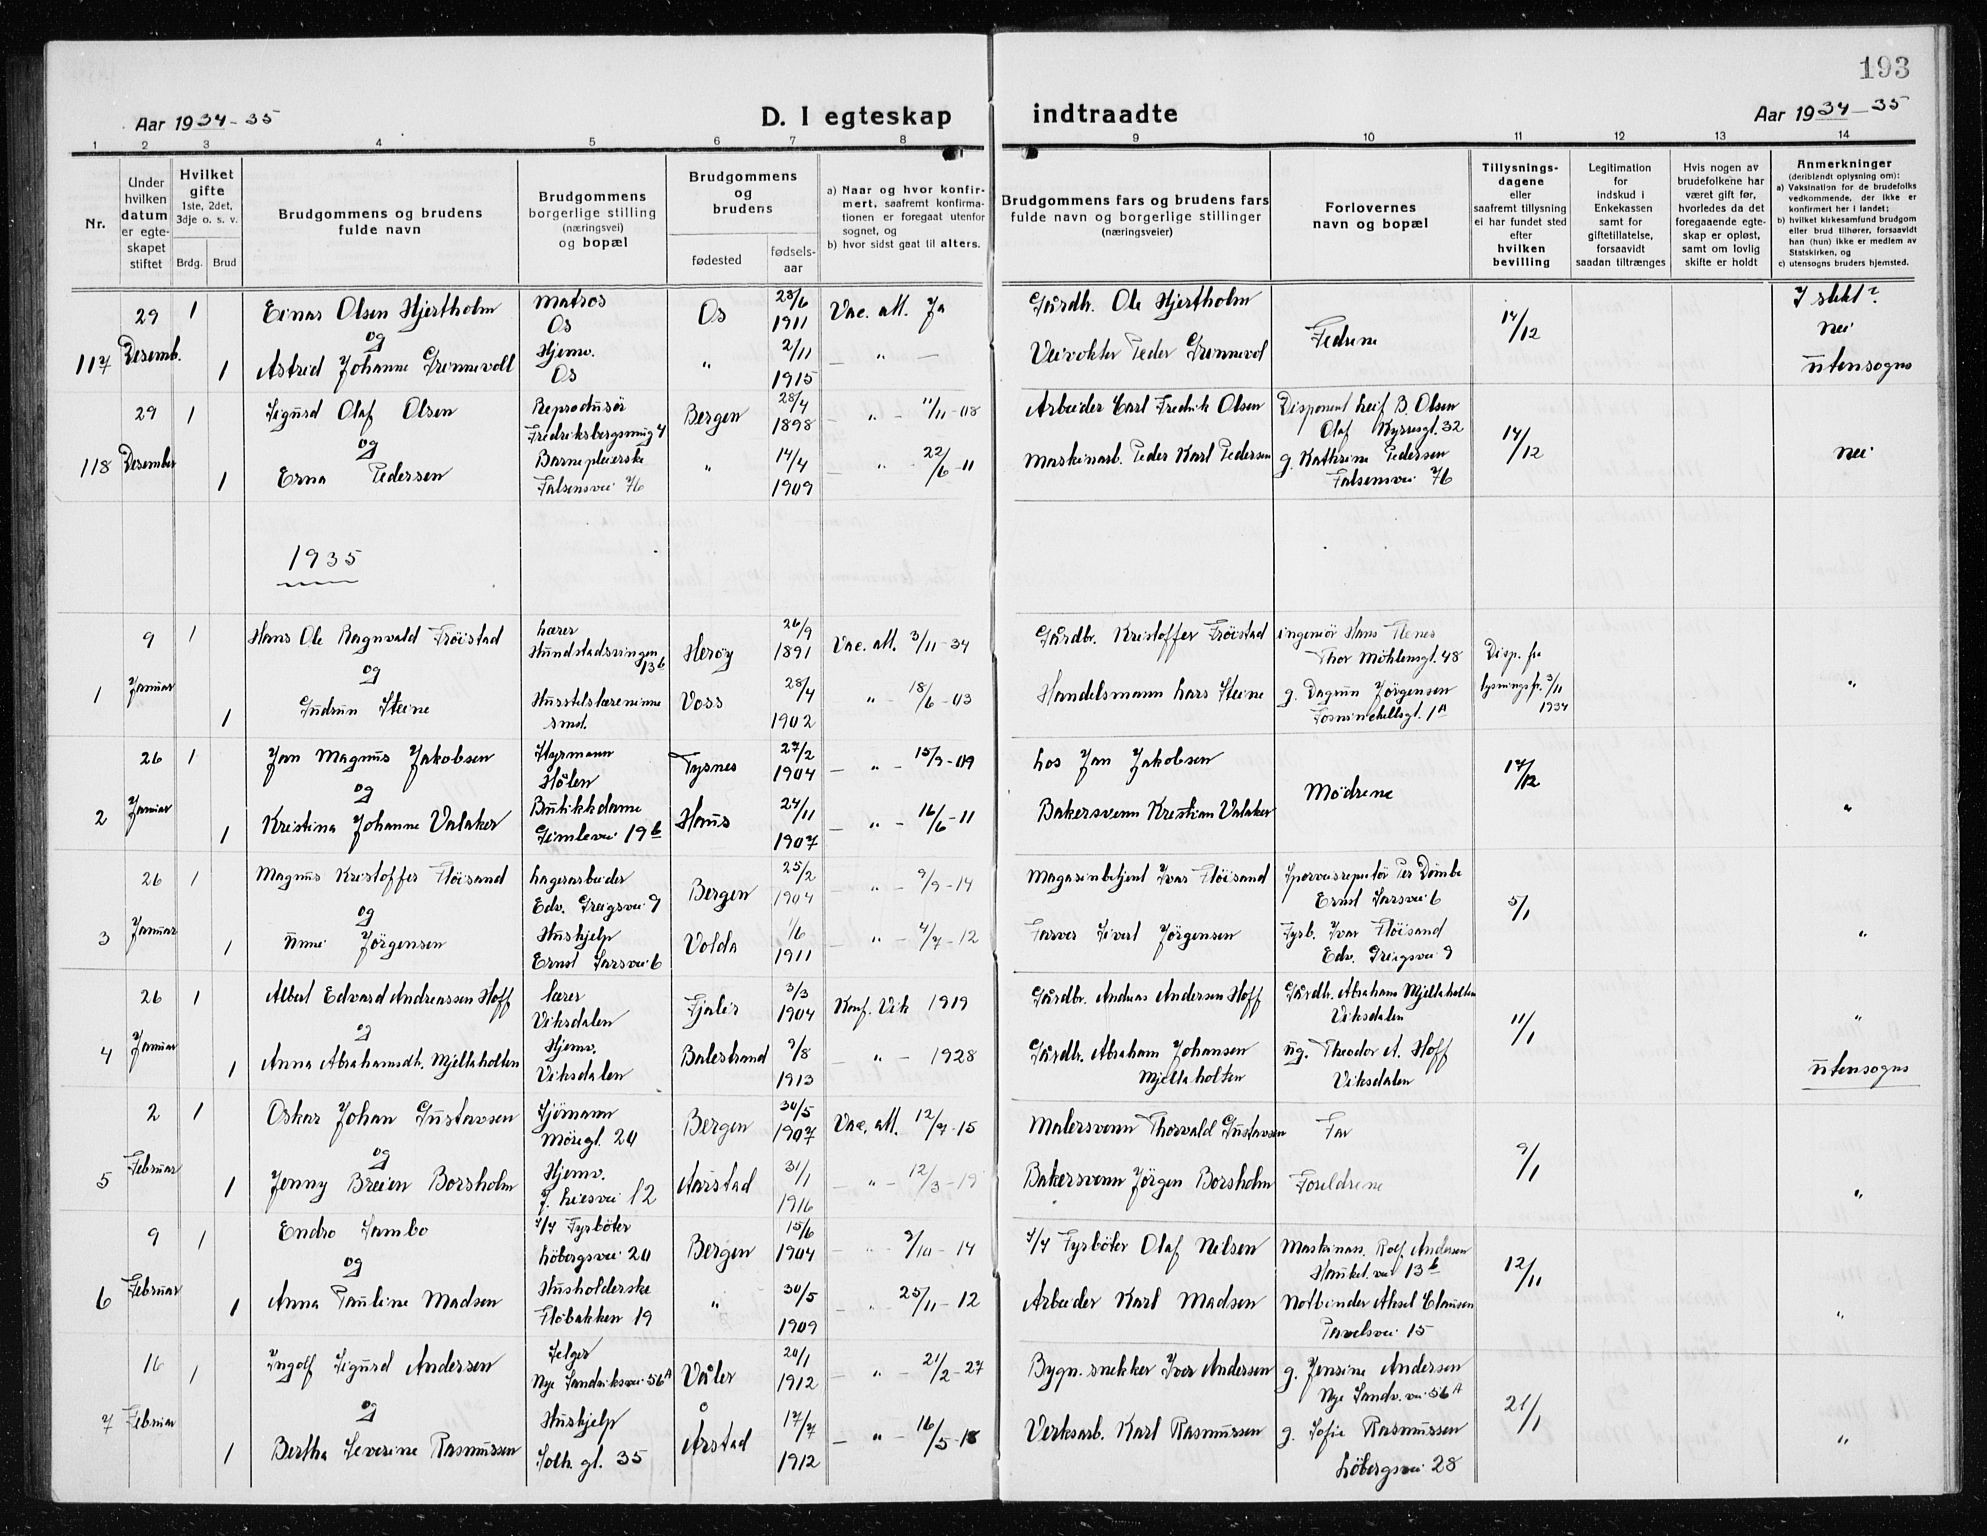 193
Aar 1934-35
D. I egteskap indtraadte
Aar 1934-35
1 2 3 4 5 6 7 8 9 10 11 12 13 14
Nr.
Under hvilken datum er egteskapet stiftet
Hvilket gifte 1ste, 2det, 3dje o. s. v.
Brdg. Brud
Brudgommens og brudens fulde navn
Brudgommens borgerlige stilling (næringsvei) og bopæl
Brudgommens og brudens
fødested fødselsaar
a) Naar og hvor konfirmert, saafremt konfirmationen er foregaat utenfor sognet, og
b) hvor sidst gaat til alters.
Brudgommens fars og brudens fars fulde navn og borgerlige stillinger (næringsveier)
Forlovernes navn og bopæl
Tillysningsdagene eller saafremt tillysning ei har fundet sted efter hvilken bevilling
Legitimation for indskud i Enkekassen samt for giftetillatelse, forsaavidt saadan tiltrænges
Hvis nogen av brudefolkene har været gift før, hvorledes da det foregaaende egteskap er opløst, samt om lovlig skifte er holdt
Anmerkninger (deriblendt oplysning om):
a) Vaksination for de brudefolks vedkommende, der ikke er konfirmert her i landet;
b) hvilket kirkesamfund brudgom eller brud tilhører, forsaavidt han (hun) ikke er medlem av Statskirken, og
c) utensogns bruders hjemsted.
29 1 Einar Olsen Hjertholm Matros Os Os 28/6 1911 Vac. att. Ja Gårdbr. Ole Hjertholm Fedrene 14/12 I slekt? nei
117 Desemb. og
1 Astrid Johanne Grinnevoll Hjemv. Os " 2/11 1915 — " — Veivokter Peder Grinnevol utensogns
29 1 Sigurd Olaf Olsen Reprodusør Fredriksbergsmug 4 Bergen 28/4 1898 — " — 11/11-08 Arbeider Carl Fredrik Olsen Disponent Leif B. Olsen Olaf Kyrresgt. 32 14/12 nei
118 Desember og
1 Erna Pedersen Barnepleierske Falsensvei 76 " 14/4 1909 — " — 22/6-11 Maskinarb. Peder Karl Pedersen g. Kathrine Pedersen Falsensvei 76
1935
9 1 Hans Ole Ragnvald Frøistad Lærer Hundstadsvingen 13b Herøy 26/9 1891 Vac. att. 3/11-34 Gårdbr. Kristoffer Frøistad ingeniør Hans Flenes Thor Möhlensgt. 48 Disp. fra lysningsfr. 3/11 1934
1 Januar og
1 Gudrun Steine Husstelslærerinne smst. Voss 28/4 1902 " 18/6-03 Handelsmann Lars Steine g. Dagrun Jørgensen 1A "
26 1 Jan Magnus Jakobsen Styrmann Hålen Tysnes 27/2 1904 — " — 15/9-09 Los Jan Jakobsen Mødrene 17/12
2 Januar og
1 Kristina Johanne Valaker Butikkdame Gimlevei 19b Haus 24/11 1907 — " — 16/6-11 Bakersvenn Kristian Valaker "
26 1 Magnus Kristoffer Fløisand Lagerarbeider Edv. Griegsvei 9 Bergen 25/2 1904 — " — 9/9-14 Magasinbetjent Ivar Fløisand Sporveisreparatør Per Dømbe Ernst Sarsvei 6 5/1
3 Januar og
1 Unni Jørgensen Huskjelp Ernst Sarsvei 6 Volda 1/6 1911 — " — 4/7-12 Farver Sivert Jørgensen Fyrb. Ivar Fløisand Edv. Griegsvei 9 "
26 1 Albert Edvard Andreassen Hoff Lærer Viksdalen Fjaler 3/3 1904 Konf. Vik 1919 Gårdbr. Andreas Andersen Hoff Gårdbr. Abraham Mjellaholten Viksdalen 11/1 "
4 Januar og
1 Anna Abrahamsdtr. Mjellaholten Hjemv. Viksdalen Balestrand 9/8 1913 — " — 1928 Gårdbr. Abraham Johansen Mjellaholten ug. Theodor A. Hoff Viksdalen utensogns
2 1 Oskar Johan Gustavsen Sjømann Møregt. 20 Bergen 30/5 1907 Vac. att. 12/7-15 Malersvenn Thorvald Gustavsen Far 9/1
5 Februar og
1 Jenny Breien Borsholm Hjemv. J. Liesvei 12 Aarstad 31/1 1916 — " — 12/3-19 Bakersvenn Jørgen Borsholm Foreldrene "
9 1 Endre Sambo Fyrbøter Løbergsvei 20 Bergen 15/6 1904 — " — 9/10-14 Fyrbøter Olaf Nilsen Maskinass. Rolf Andersen Hauket. vei 13b 12/11
6 Februar og
1 Anna Pauline Madsen Husholderske Fløbakken 19 " 30/5 1909 — " — 25/11-12 Arbeider Karl Madsen Notbinder Aksel Clausen 15 "
16 1 Ingolf Sigurd Andersen Selger Nye Sandviksvei 56A Våler 20/1 1912 — " — 21/2-27 Bygn. snekker Iver Andersen g. Jensine Andersen Nye Sandv. vei 56A 21/1
7 Februar og
1 Bertha Severine Rasmussen Huskjelp Solh. gt. 35 Årstad 17/7 1912 — " — 16/5-18 Verksarb. Karl Rasmussen g. Sofie Rasmussen Løbergsvei 28 "